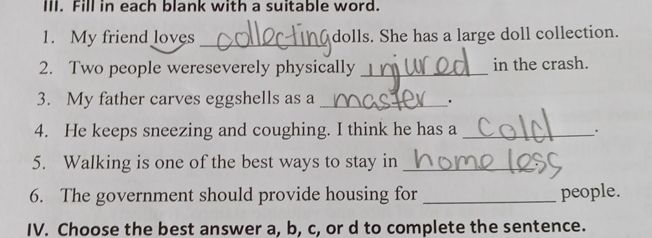 III. Fill in each blank with a suitable word.
1. My friend loves collecting dolls. She has a large doll collection.
2. Two people wereseverely physically injured in the crash.
3. My father carves eggshells as a master.
4. He keeps sneezing and coughing. I think he has a cold.
5. Walking is one of the best ways to stay in home less
6. The government should provide housing for ____________ people.
IV. Choose the best answer a, b, c, or d to complete the sentence.